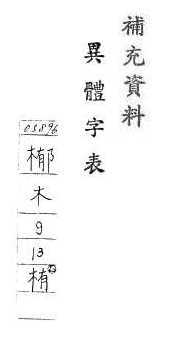 補充資料
異體字表
03896
木
9
13